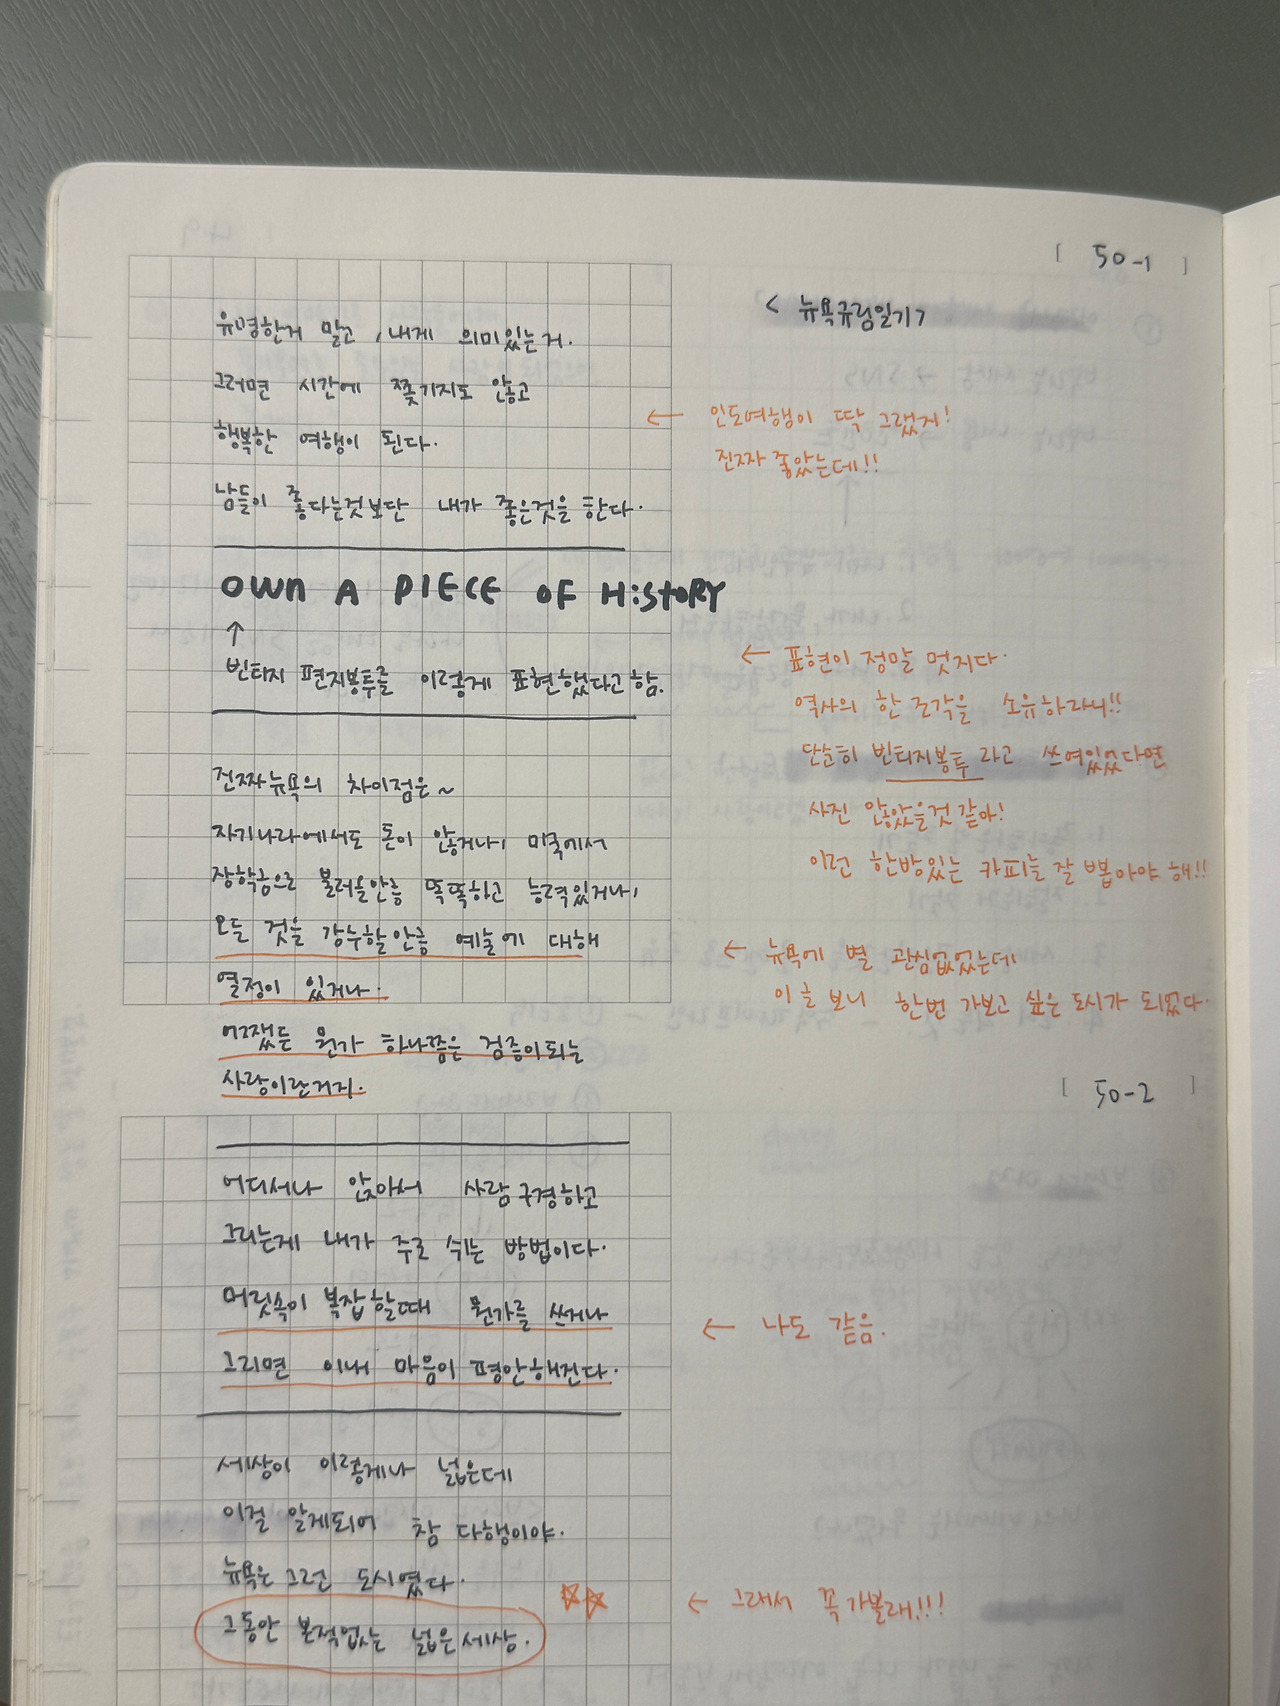 [ 50-1 ]
< 뉴욕규림일기 >
유명한거 말고, 내게 의미있는거.
그러면 시간에 쫓기지도 않고
행복한 여행이 된다.
남들이 좋다는것보단 내가 좋은것을 한다.
← 인도여행이 딱 그랬지!
진짜 좋았는데!!
OWN A PIECE OF HiSTORY
↑
빈티지 편지봉투를 이렇게 표현했다고 함.
← 표현이 정말 멋지다.
역사의 한 조각을 소유하라니!!
단순히 빈티지봉투 라고 쓰여있었다면
사진 않았을것 같아!
이런 한방있는 카피를 잘 뽑아야 해!!
진짜뉴욕의 차이점은~
자기나라에서도 돈이 많거나, 미국에서
장학금으로 불러올만큼 똑똑하고 능력있거나,
모든 것을 감수할만큼 예술에 대해
열정이 있거나.
어쨌든 뭔가 하나쯤은 검증이되는
사람이란거지.
← 뉴욕에 별 관심없었는데
이글 보니 한번 가보고 싶은 도시가 되었다.
[ 50-2 ]
어디서나 앉아서 사람구경하고
그리는게 내가 주로 쉬는 방법이다.
머릿속이 복잡할때 뭔가를 쓰거나
그리면 이내 마음이 평안해진다.
← 나도 같음.
세상이 이렇게나 넓은데
이걸 알게되어 참 다행이야.
뉴욕은 그런 도시였다.
그동안 본적없는 넓은세상.
← 그래서 꼭 가볼래!!!